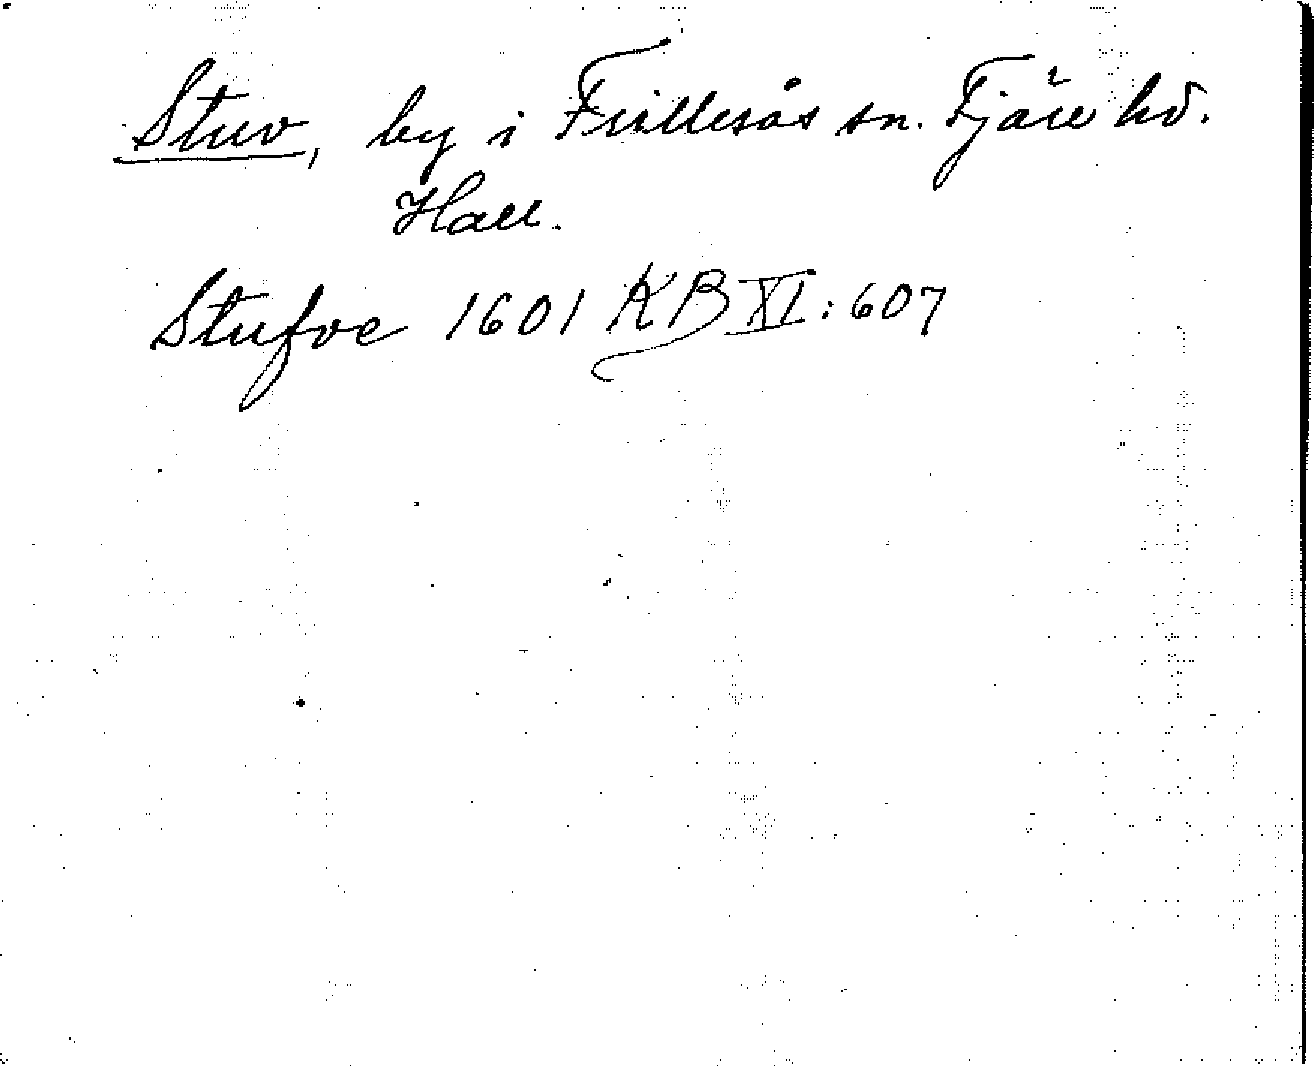 Stuv, by i Frillesås sn. Fjäre hd.
Hall.
Stufve 1601 KB XI:607